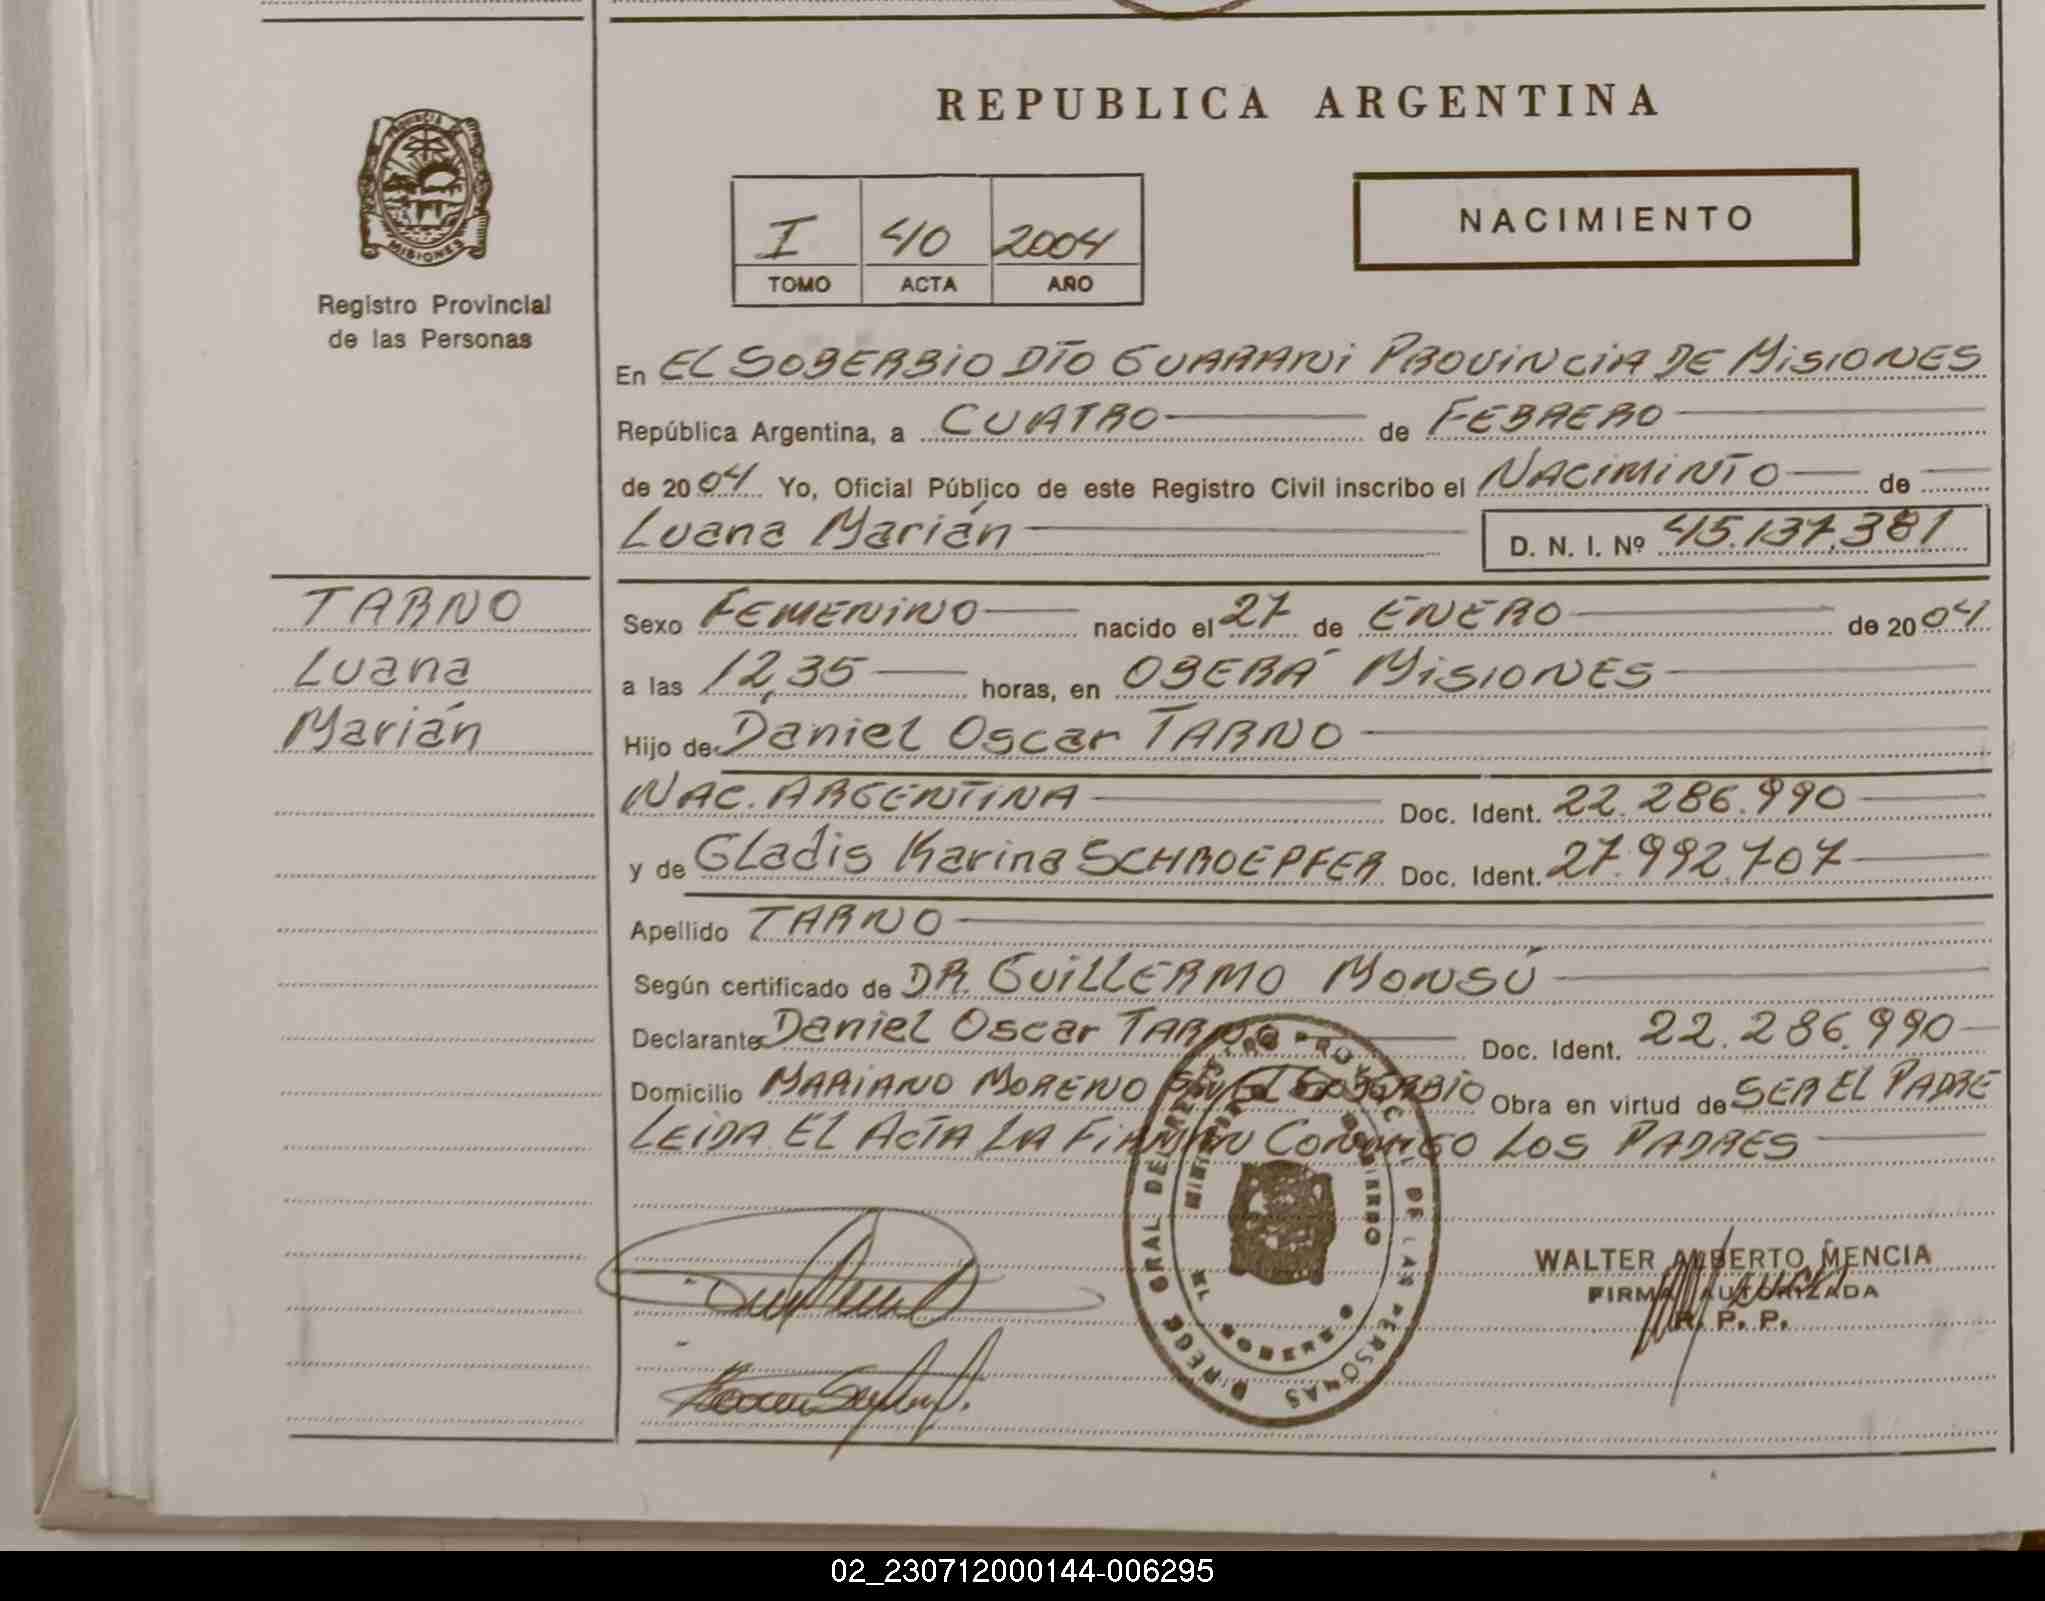 REPUBLICA ARGENTINA
PROVINCIA DE MISIONES
Registro Provincial
de las Personas
I 40 2004
TOMO ACTA AÑO
NACIMIENTO
En EL SOBERBIO DTO GUARANI PROVINCIA DE MISIONES
República Argentina, a CUATRO de FEBRERO
de 2004 Yo, Oficial Público de este Registro Civil inscribo el NACIMINTO de
Luana Marián D. N. I. Nº 45.137.381
TARNO
Luana
Marián
Sexo FEMENINO nacido el 27 de ENERO de 2004
a las 12,35 horas, en OBERÁ MISIONES
Hijo de Daniel Oscar TARNO
NAC. ARGENTINA Doc. Ident. 22.286.990
y de Gladis Karina SCHROEPFER Doc. Ident. 27.992.707
Apellido TARNO
Según certificado de DR. GUILLERMO MONSÚ
Declarante Daniel Oscar TARNO Doc. Ident. 22.286.990
Domicilio MARIANO MORENO EL SOBERBIO Obra en virtud de SER EL PADRE
LEIDA EL ACTA LA FIRMAN CONMIGO LOS PADRES
DIRECC GRAL DEL REGISTRO PROVINCIAL DE LAS PERSONAS
MINISTERIO DE GOBIERNO
EL SOBERBIO
WALTER ALBERTO MENCIA
FIRMA AUTORIZADA
R. P. P.
02_230712000144-006295